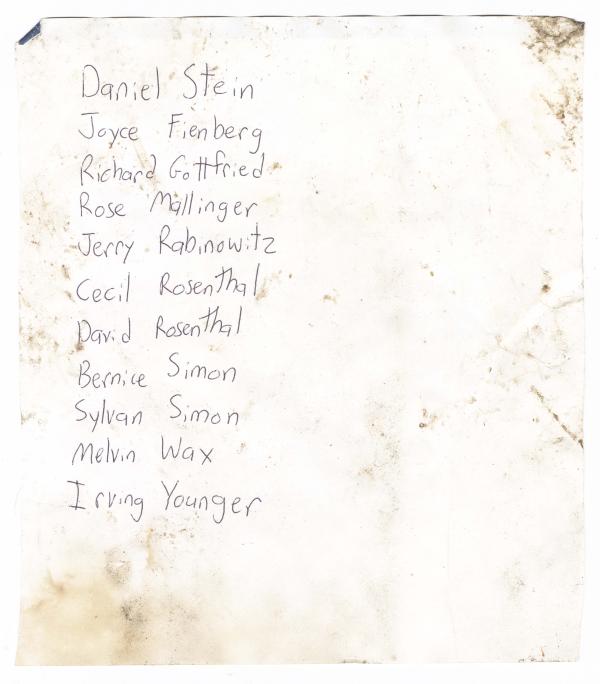 Daniel Stein
Joyce Fienberg
Richard Gottfried
Rose Mallinger
Jerry Rabinowitz
Cecil Rosenthal
David Rosenthal
Bernice Simon
Sylvan Simon
Melvin Wax
Irving Younger